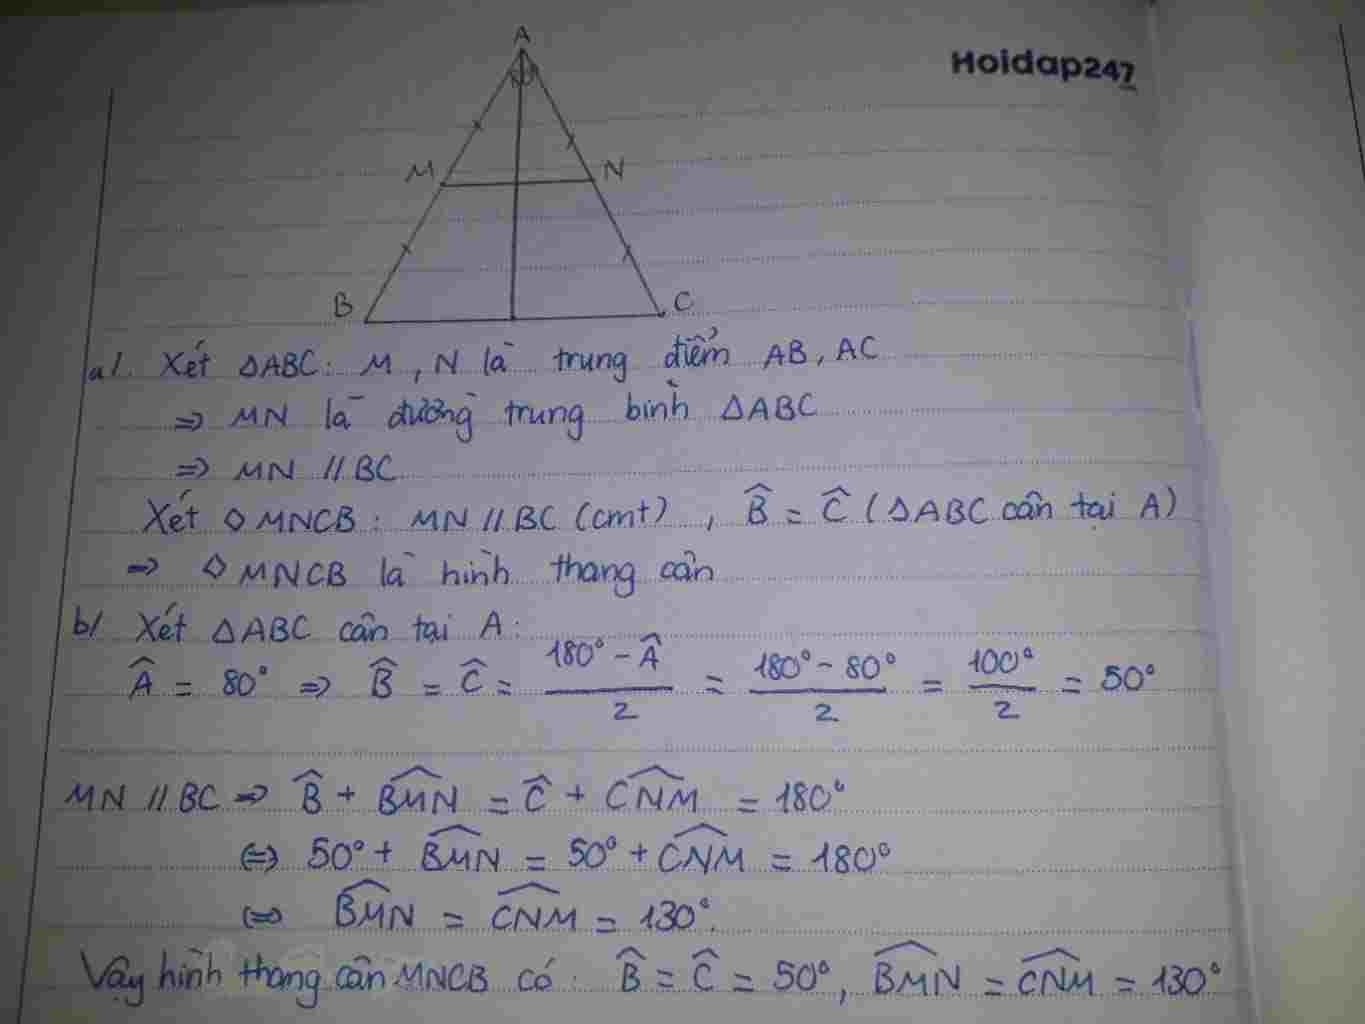 A
Hoidap247
M N
B C
a/. Xét ΔABC: M, N là trung điểm AB, AC
=> MN là đường trung bình ΔABC
=> MN // BC
Xét ◇ MNCB: MN // BC (cmt), B̂ = Ĉ (ΔABC cân tại A)
=> ◇ MNCB là hình thang cân
b/ Xét ΔABC cân tại A:
Â = 80° => B̂ = Ĉ = (180° - Â)/2 = (180° - 80°)/2 = 100°/2 = 50°
MN // BC => B̂ + BMN̂ = Ĉ + CNM̂ = 180°
<=> 50° + BMN̂ = 50° + CNM̂ = 180°
<=> BMN̂ = CNM̂ = 130°.
Vậy hình thang cân MNCB có: B̂ = Ĉ = 50°, BMN̂ = CNM̂ = 130°